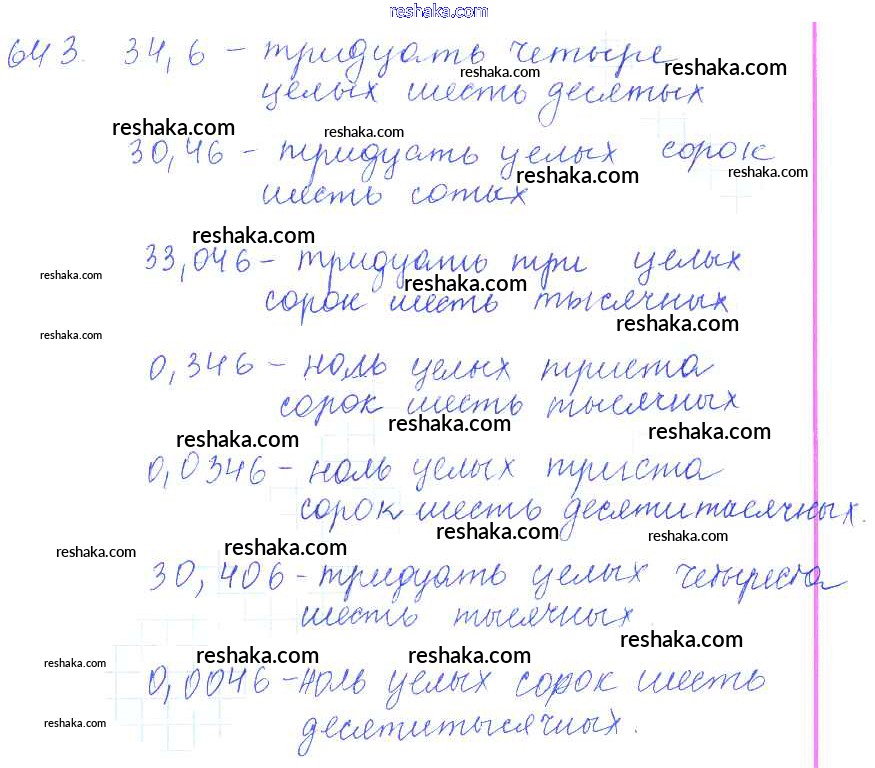 reshaka.com
643. 34,6 – тридцать четыре
reshaka.com reshaka.com
целых шесть десятых
reshaka.com reshaka.com
30,46 – тридцать целых сорок
reshaka.com reshaka.com
шесть сотых
reshaka.com
33,046 – тридцать три целых
reshaka.com reshaka.com
сорок шесть тысячных
reshaka.com
reshaka.com
0,346 – ноль целых триста
сорок шесть тысячных
reshaka.com reshaka.com reshaka.com
0,0346 – ноль целых триста
сорок шесть десятитысячных.
reshaka.com reshaka.com
reshaka.com reshaka.com
30,406 – тридцать целых четыреста
шесть тысячных.
reshaka.com
reshaka.com reshaka.com reshaka.com
0,0046 – ноль целых сорок шесть
reshaka.com
десятитысячных.